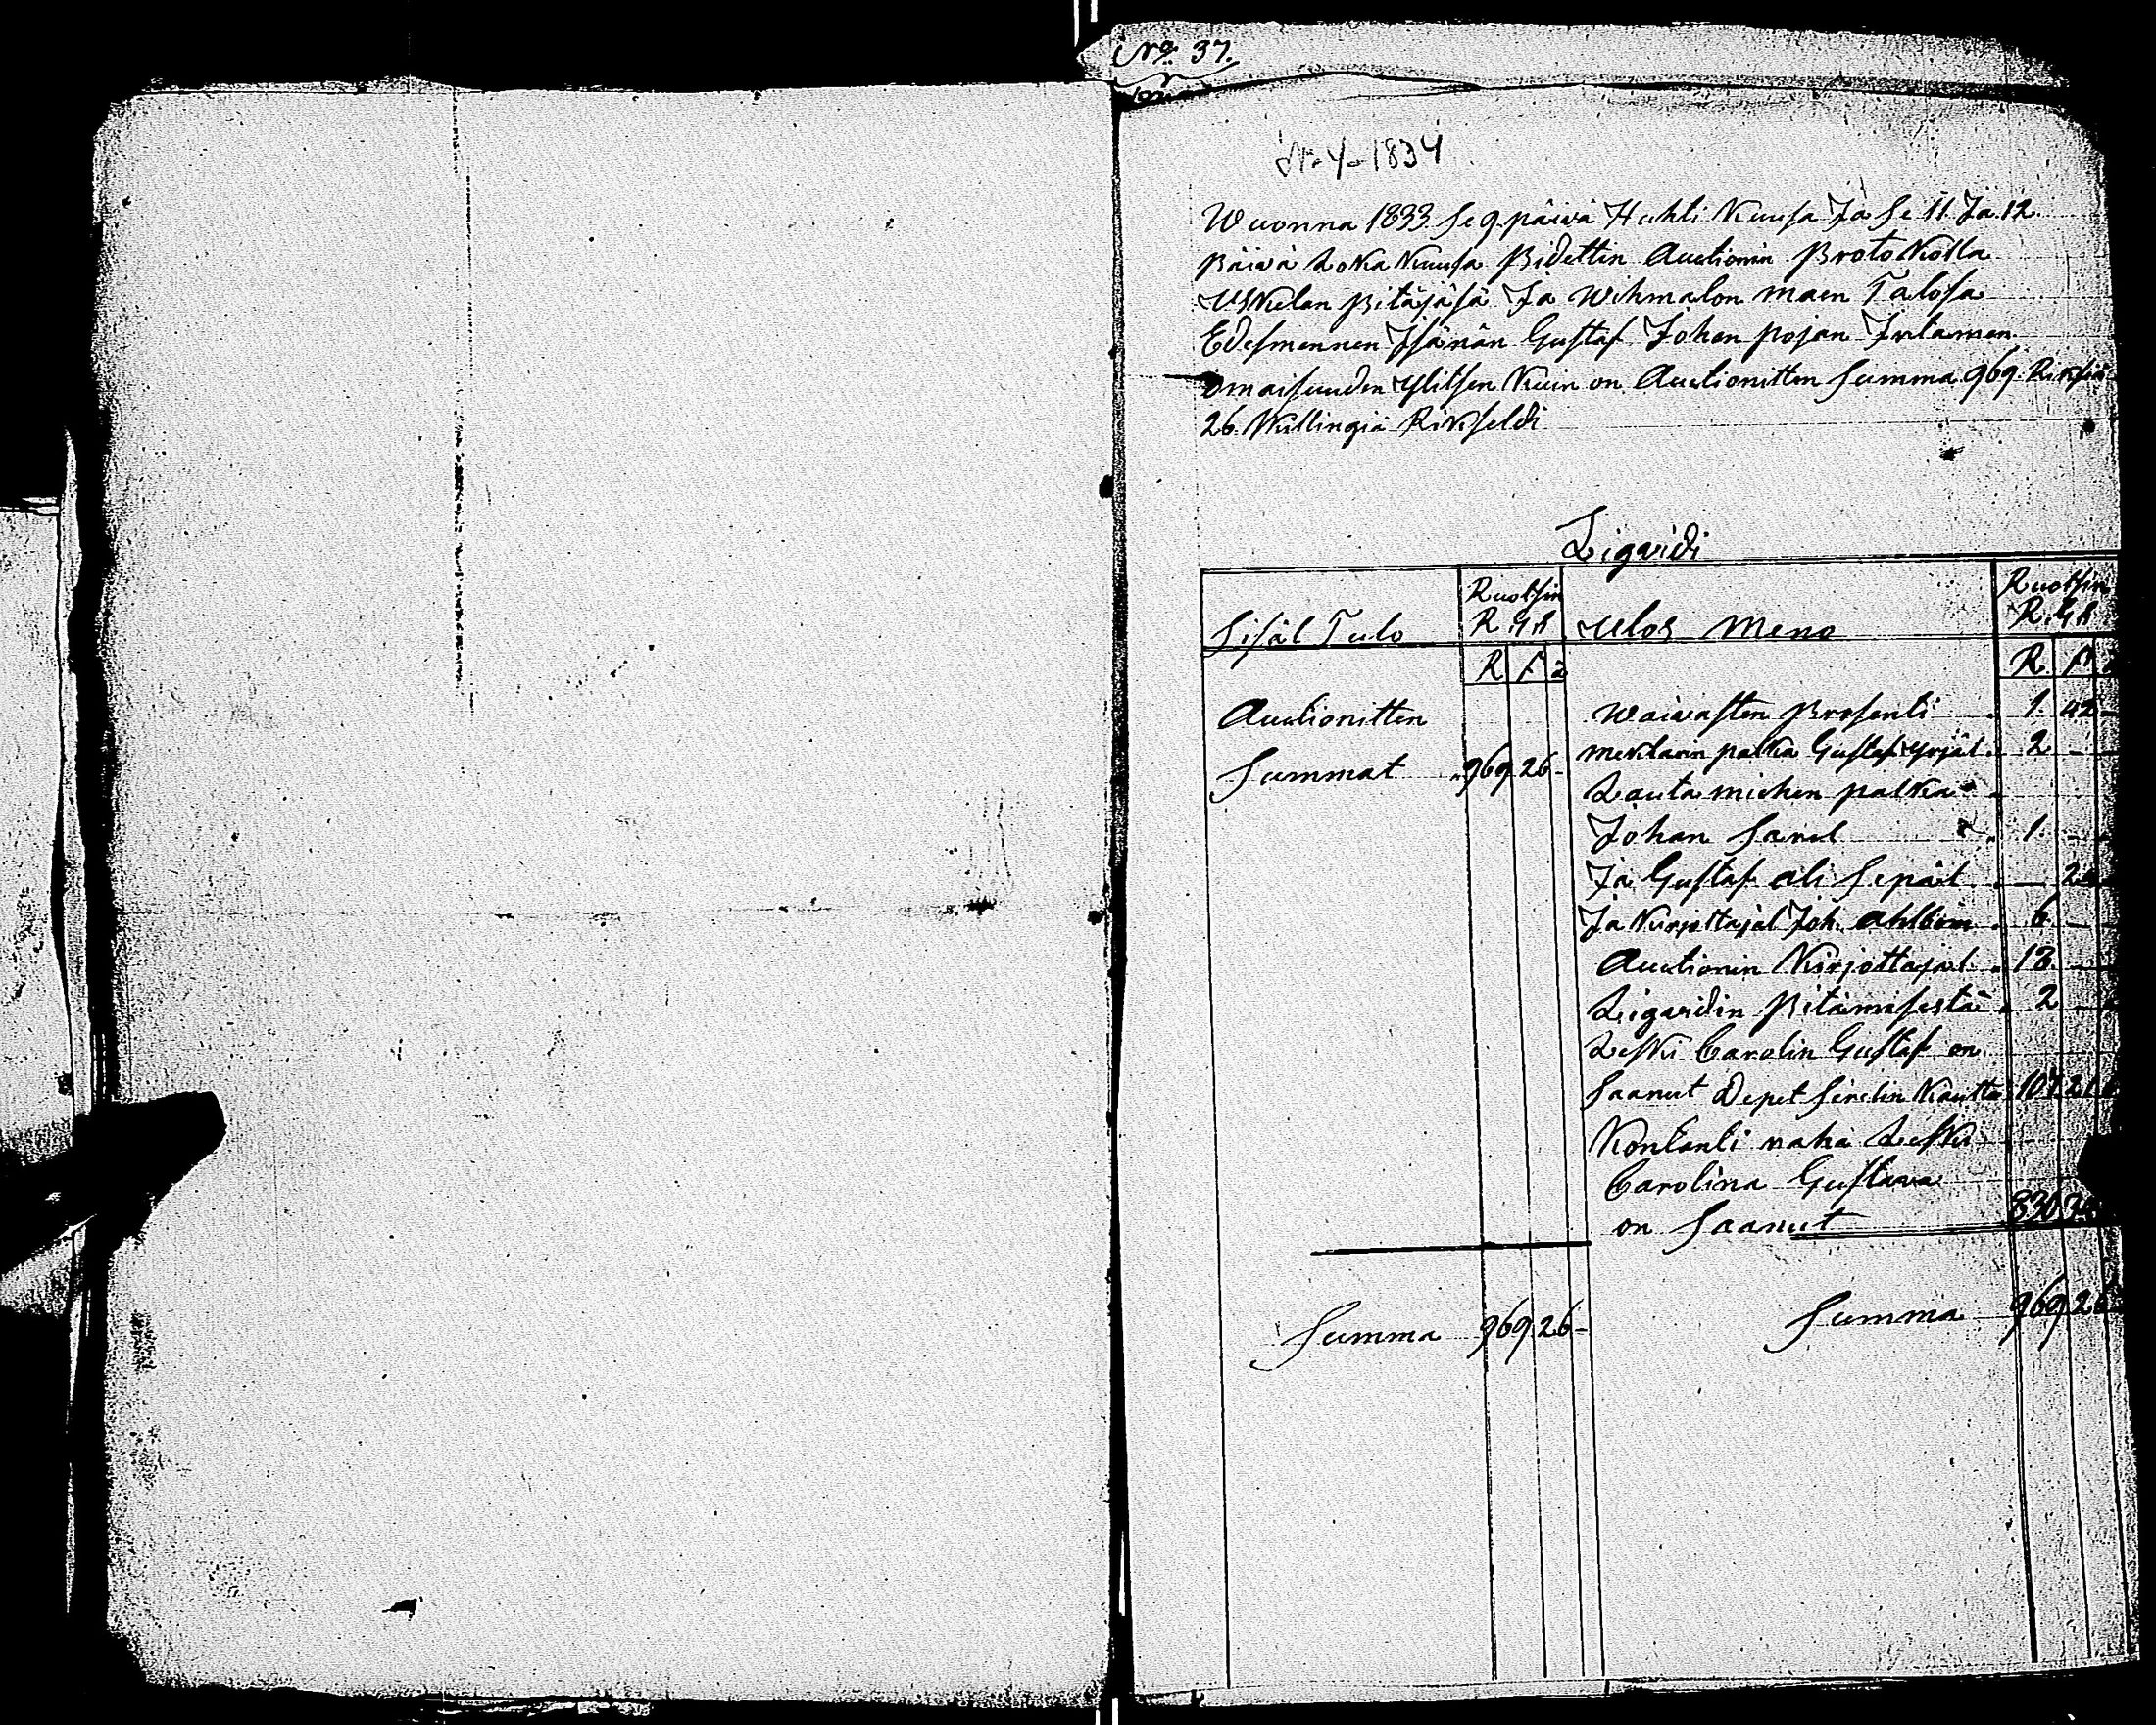 No. 37.
N. 4-1834
Wuonna 1833. se 9. päivä Huhti Kuusa Ja se 11. Ja 12.
päivä Loka Kuusa Pidettin Auctionin ProtoKolla
USKelan pitäjäsä Ja Wihmalon mäen Talosa
Edesmennen Isänän Gustaf Johan pojan
omaisuuden ylitsen Kuin on Auctionitten summa 969. Riksiä
26. Killingiä RiKseldi
Ligvidi
Sisäl Tulo
Ruotsin
R.G.S
Ulos Meno
Ruotsin
R.G.S
R
R.
Auctionitten
Waivasten Prosenti 1. 42
Summat 969 26 -
meklarin palka Gustaf Yrjäl 2 -
Lauta miehen palKa
Johan Sarel 1. -
Ja Gustaf ali Sepäl -
Ja Kirjottajal Joh. Ahlbom 6. -
Auctionin Kirjottajal 18. -
Ligvidin Pitämisestä 2 -
LesKi Carolin Gustaf on
saanut Depet Kautta
Kontanti raha LesKi
Carolina Gustava
on Saanut
Summa 969 26 -
Summa 969 26